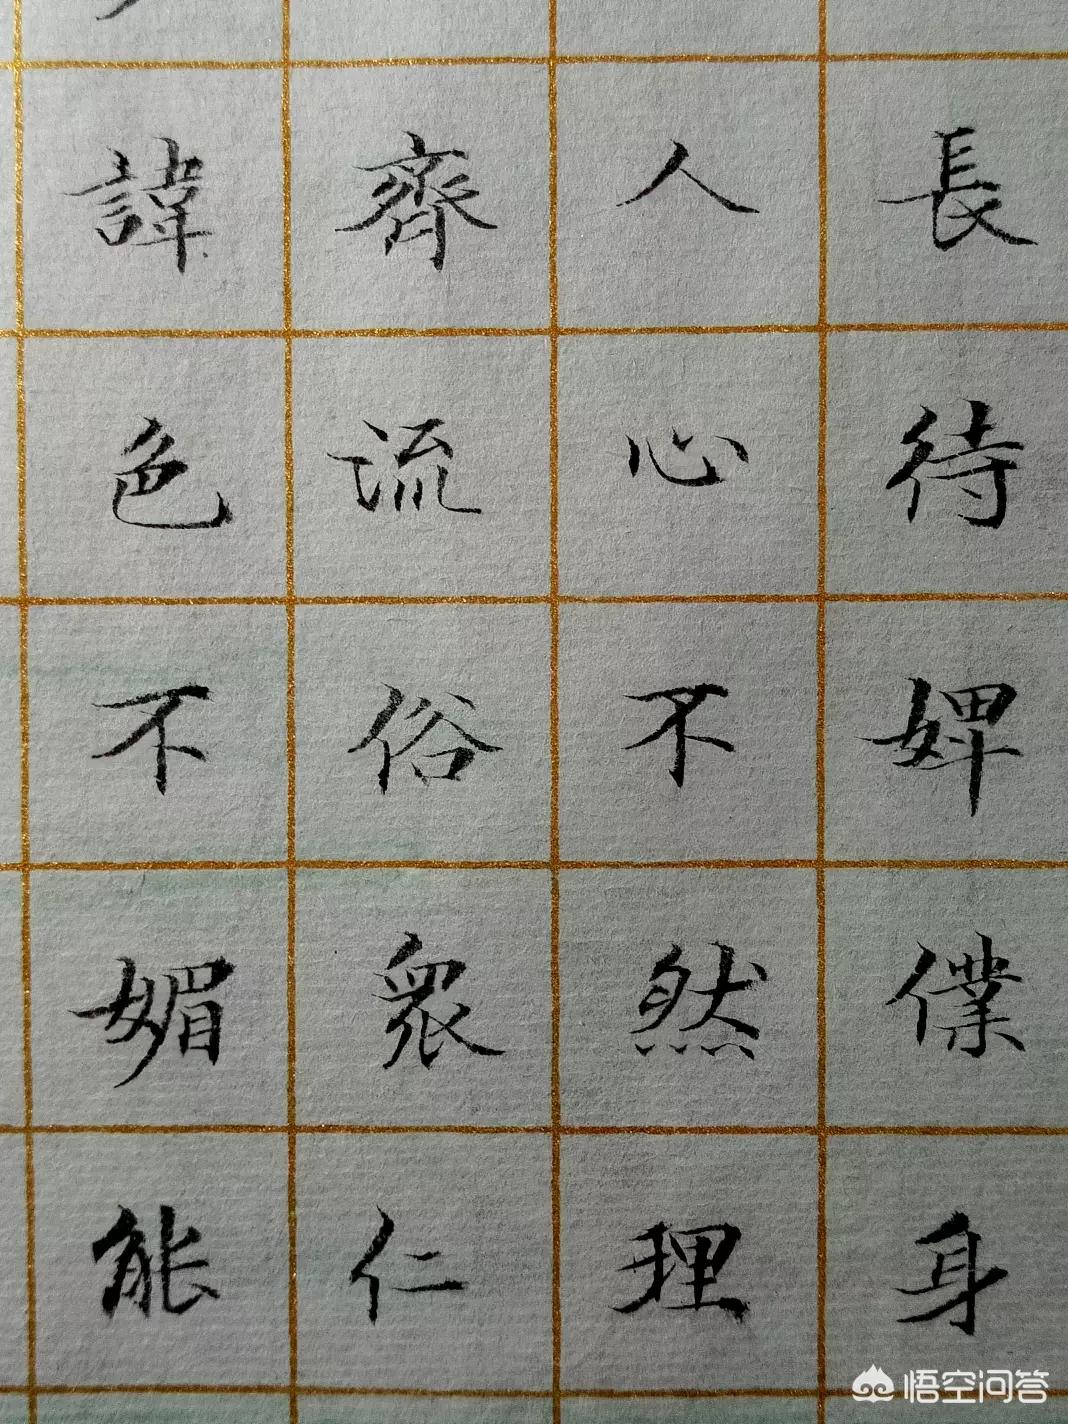 長待婢僕身
人心不然理
齊流俗衆仁
諱色不媚能
悟空问答